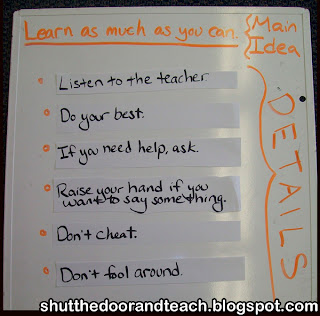 Learn as much as you can.
Main
Idea
Listen to the teacher
Do your best.
If you need help, ask.
Raise your hand if you
want to say something.
Don't cheat.
Don't fool around.
DETAILS
shutthedoorandteach.blogspot.com